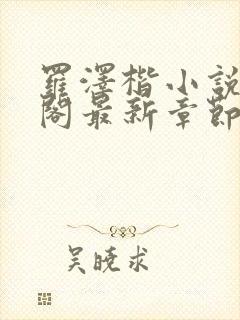 羅澤楷小說
閣最新章節
吳曉求